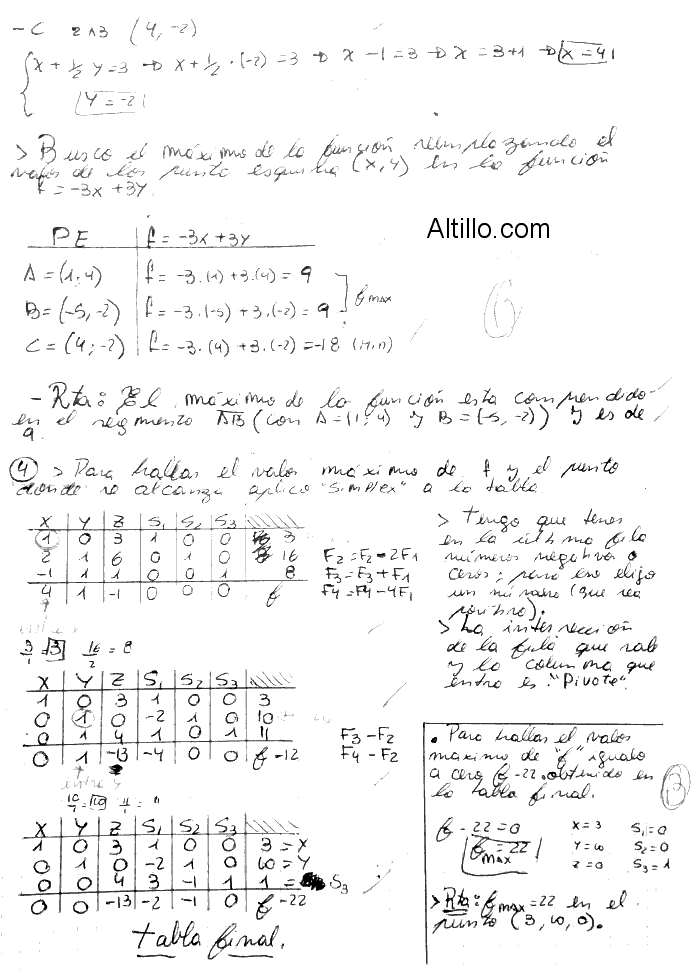 - C 2∩3 (4, -2)
{ X + 1/2 Y = 3 → X + 1/2 · (-2) = 3 → X - 1 = 3 → X = 3+1 → X = 4
Y = -2
> Busco el máximo de la función reemplazando el
valor de los punto esquina (X, Y) en la función
f = -3X + 3Y.
Altillo.com
PE | f = -3X + 3Y
A = (1; 4) | f = -3·(1) + 3·(4) = 9
B = (-5, -2) | f = -3·(-5) + 3·(-2) = 9
f max
C = (4; -2) | f = -3·(4) + 3·(-2) = -18 (Min)
6
- Rta: El máximo de la función esta comprendido
en el segmento AB (con A = (1; 4) y B = (-5, -2)) y es de
9.
4 > Para hallar el valor máximo de f y el punto
donde se alcanza aplico "Simplex" a la tabla.
X Y Z S1 S2 S3
1 0 3 1 0 0 3
2 1 6 0 1 0 16 F2 = F2 - 2F1
-1 1 1 0 0 1 8 F3 = F3 + F1
4 1 -1 0 0 0 f F4 = F4 - 4F1
entra x
3/1 = 3 16/2 = 8
> Tengo que tener
en la última fila
números negativos o
ceros; para eso elijo
un número (que sea
positivo).
> La intersección
de la fila que sale
y la columna que
entra es "Pivote".
X Y Z S1 S2 S3
1 0 3 1 0 0 3
0 1 0 -2 1 0 10
0 1 4 1 0 1 11 F3 - F2
0 1 -13 -4 0 0 f -12 F4 - F2
entra Y
10/1 = 10 11/1 = 11
X Y Z S1 S2 S3
1 0 3 1 0 0 3 = X
0 1 0 -2 1 0 10 = Y
0 0 4 3 -1 1 1 = S3
0 0 -13 -2 -1 0 f -22
tabla final.
• Para hallar el valor
maximo de "f" igualo
a cero f -22 obtenido en
la tabla final.
B
f - 22 = 0 X = 3 S1 = 0
f max = 22 Y = 10 S2 = 0
Z = 0 S3 = 1
> Rta: f max = 22 en el
punto (3, 10, 0).